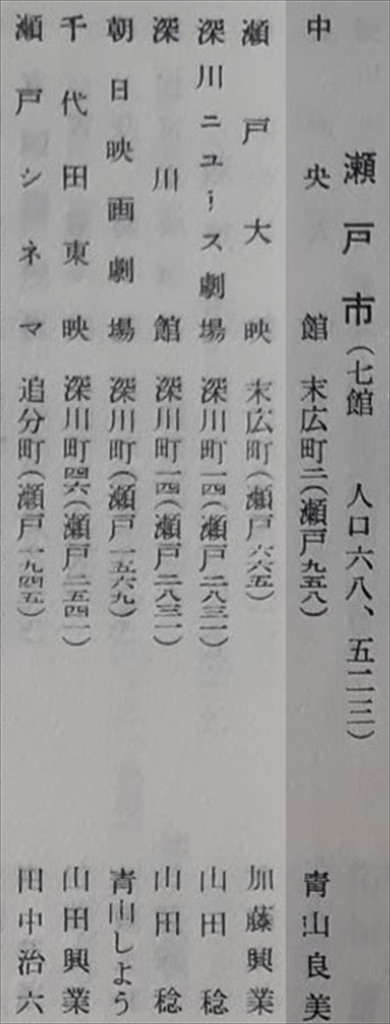 瀬戸市(七館 人口六八、五二三)
中央館 末広町二(瀬戸九五八) 青山良美
瀬戸大映 末広町(瀬戸六六五) 加藤興業
深川ニュース劇場 深川町一四(瀬戸二八三一) 山田稔
深川館 深川町一四(瀬戸二八三一) 山田稔
朝日映画劇場 深川町(瀬戸一五六九) 青山しよう
千代田東映 深川町四六(瀬戸二五四一) 山田興業
瀬戸シネマ 追分町(瀬戸一九四五) 田中治六